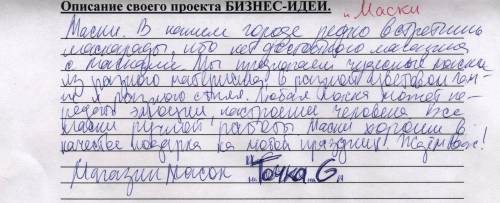 Описание своего проекта БИЗНЕС-ИДЕИ. "Маски
Маски. В нашем городе редко встретишь
маскарады, что нет достойного магазина
с масками. Мы предлагаем чудесные маски
из разного материала, в разной цветовой гам-
ме и разного стиля. Любая маска может пе-
редать эмоции, настроение человека. Все
маски ручной работы. Маски хороши в
качестве подарка на любой праздник. Ждём вас!
Магазин масок "Точка G"